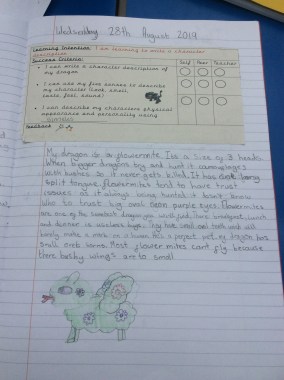 Wednesday 28th August 2019
Learning Intention: I am learning to write a character description
Success Criteria: Self Peer Teacher
• I can write a character description of my dragon
• I can use my five senses to describe my character (look, smell, taste, feel, sound)
• I can describe my characters physical appearance and personality using
Feedback
My dragon is a flowermite. Its a size of 3 heads
When bigger dragons try and hunt it camouflages
with bushes so it never gets killed. It has a
split tongue. flowermites tend to have trust
issues so it always being hunted it dosn't know
who to trust big and neon purple eyes. flowermites
are one of the sweetest dragon you will find there breakfast, lunch
and dinner is useless bugs. Tiny tale small and tooth wich will
barely make a mark on a human this is a perfect pet. my dragon has
small horns. Most flower mites cant fly because
there bushy wings art to small